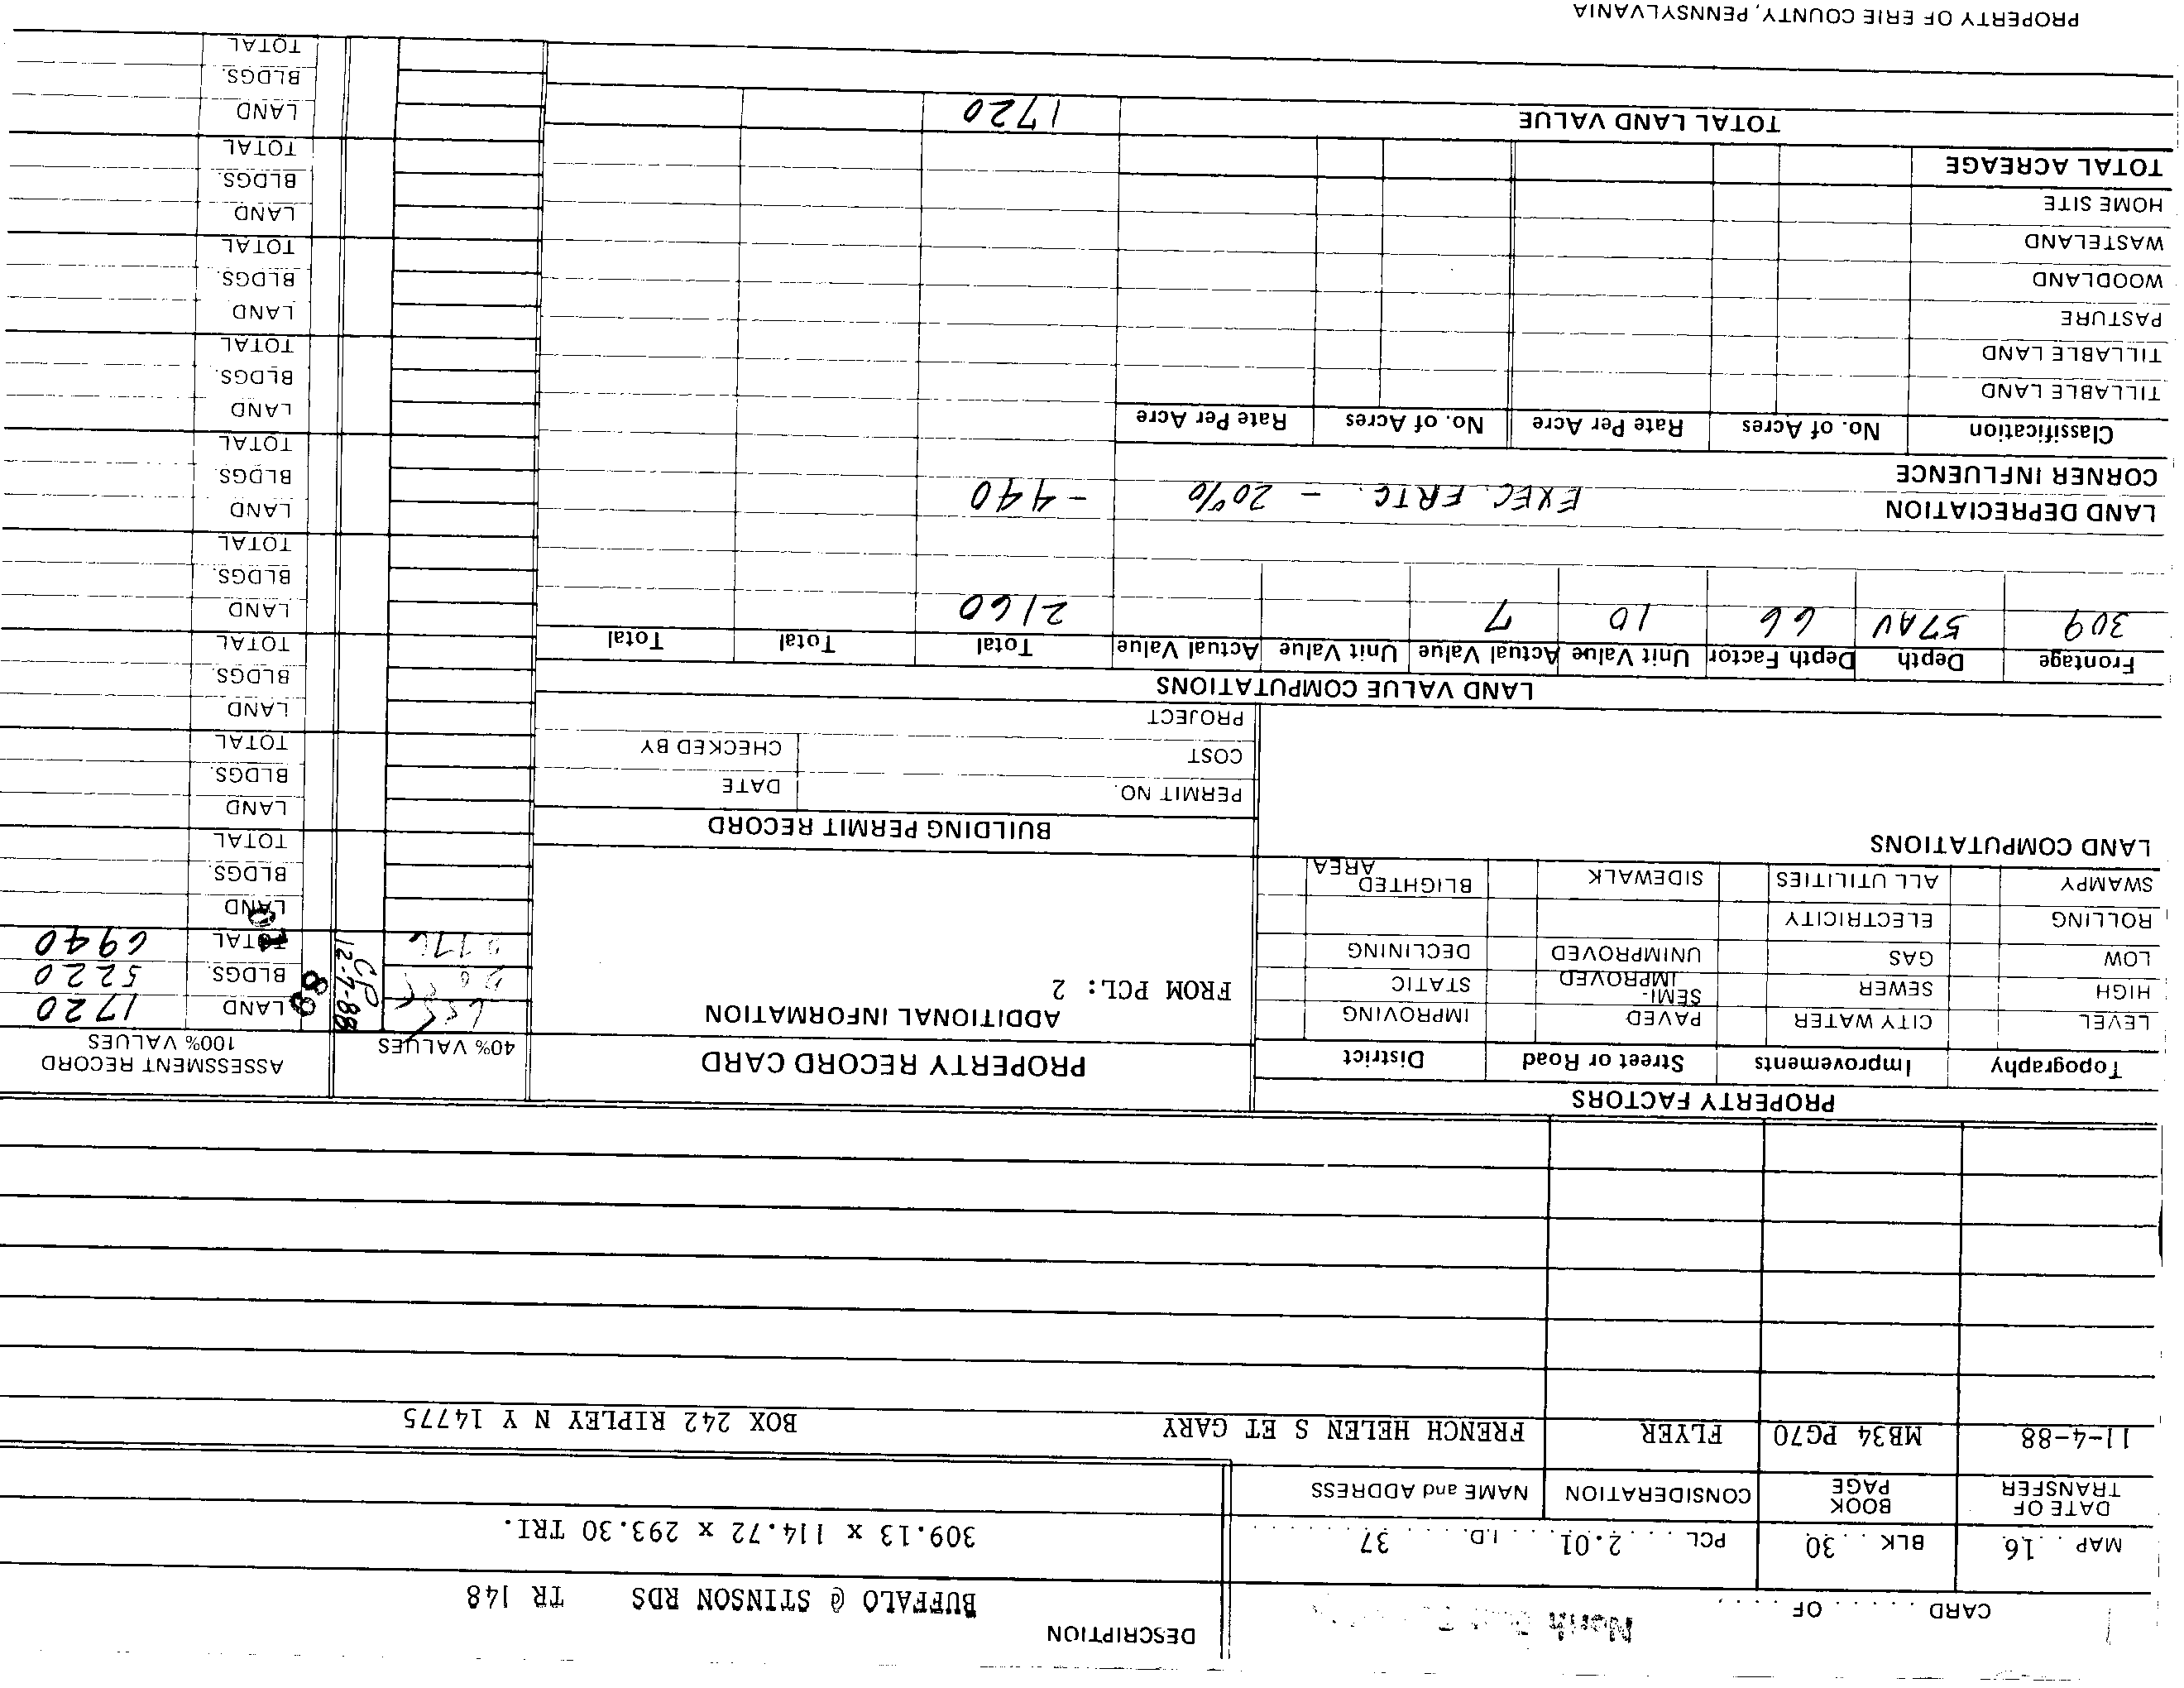 CARD . . . . . . OF . . . . .
North East
DESCRIPTION
BUFFALO @ STINSON RDS TR 148
MAP . . 16 BLK . . 30 PCL . . . . 2.01 . . . . I.D. . . . 37 . . . . . . . . .
309.13 x 114.72 x 293.30 TRI.
DATE OF TRANSFER BOOK PAGE CONSIDERATION NAME and ADDRESS
11-4-88 MB34 PG70 FLYER FRENCH HELEN S ET GARY BOX 242 RIPLEY N Y 14775
PROPERTY FACTORS
Topography Improvements Street or Road District
LEVEL CITY WATER PAVED IMPROVING
HIGH SEWER SEMI-IMPROVED STATIC
LOW GAS UNIMPROVED DECLINING
ROLLING ELECTRICITY
SWAMPY ALL UTILITIES SIDEWALK BLIGHTED AREA
LAND COMPUTATIONS
PROPERTY RECORD CARD
ADDITIONAL INFORMATION
FROM PCL: 2
BUILDING PERMIT RECORD
PERMIT NO. DATE
COST CHECKED BY
PROJECT
40% VALUES
ASSESSMENT RECORD
100% VALUES
CP
12-7-88
89
LAND 1720
BLDGS. 5220
TOTAL 6940
LAND
BLDGS.
TOTAL
LAND
BLDGS.
TOTAL
LAND
BLDGS.
TOTAL
LAND
BLDGS.
TOTAL
LAND
BLDGS.
TOTAL
LAND
BLDGS.
TOTAL
LAND
BLDGS.
TOTAL
LAND
BLDGS.
TOTAL
LAND
BLDGS.
TOTAL
LAND VALUE COMPUTATIONS
Frontage Depth Depth Factor Unit Value Actual Value Unit Value Actual Value Total Total Total
309 57AV 66 10 7 2160
LAND DEPRECIATION EXEC. FRTG. - 20% -440
CORNER INFLUENCE
Classification No. of Acres Rate Per Acre No. of Acres Rate Per Acre
TILLABLE LAND
TILLABLE LAND
PASTURE
WOODLAND
WASTELAND
HOME SITE
TOTAL ACREAGE
TOTAL LAND VALUE 1720
PROPERTY OF ERIE COUNTY, PENNSYLVANIA